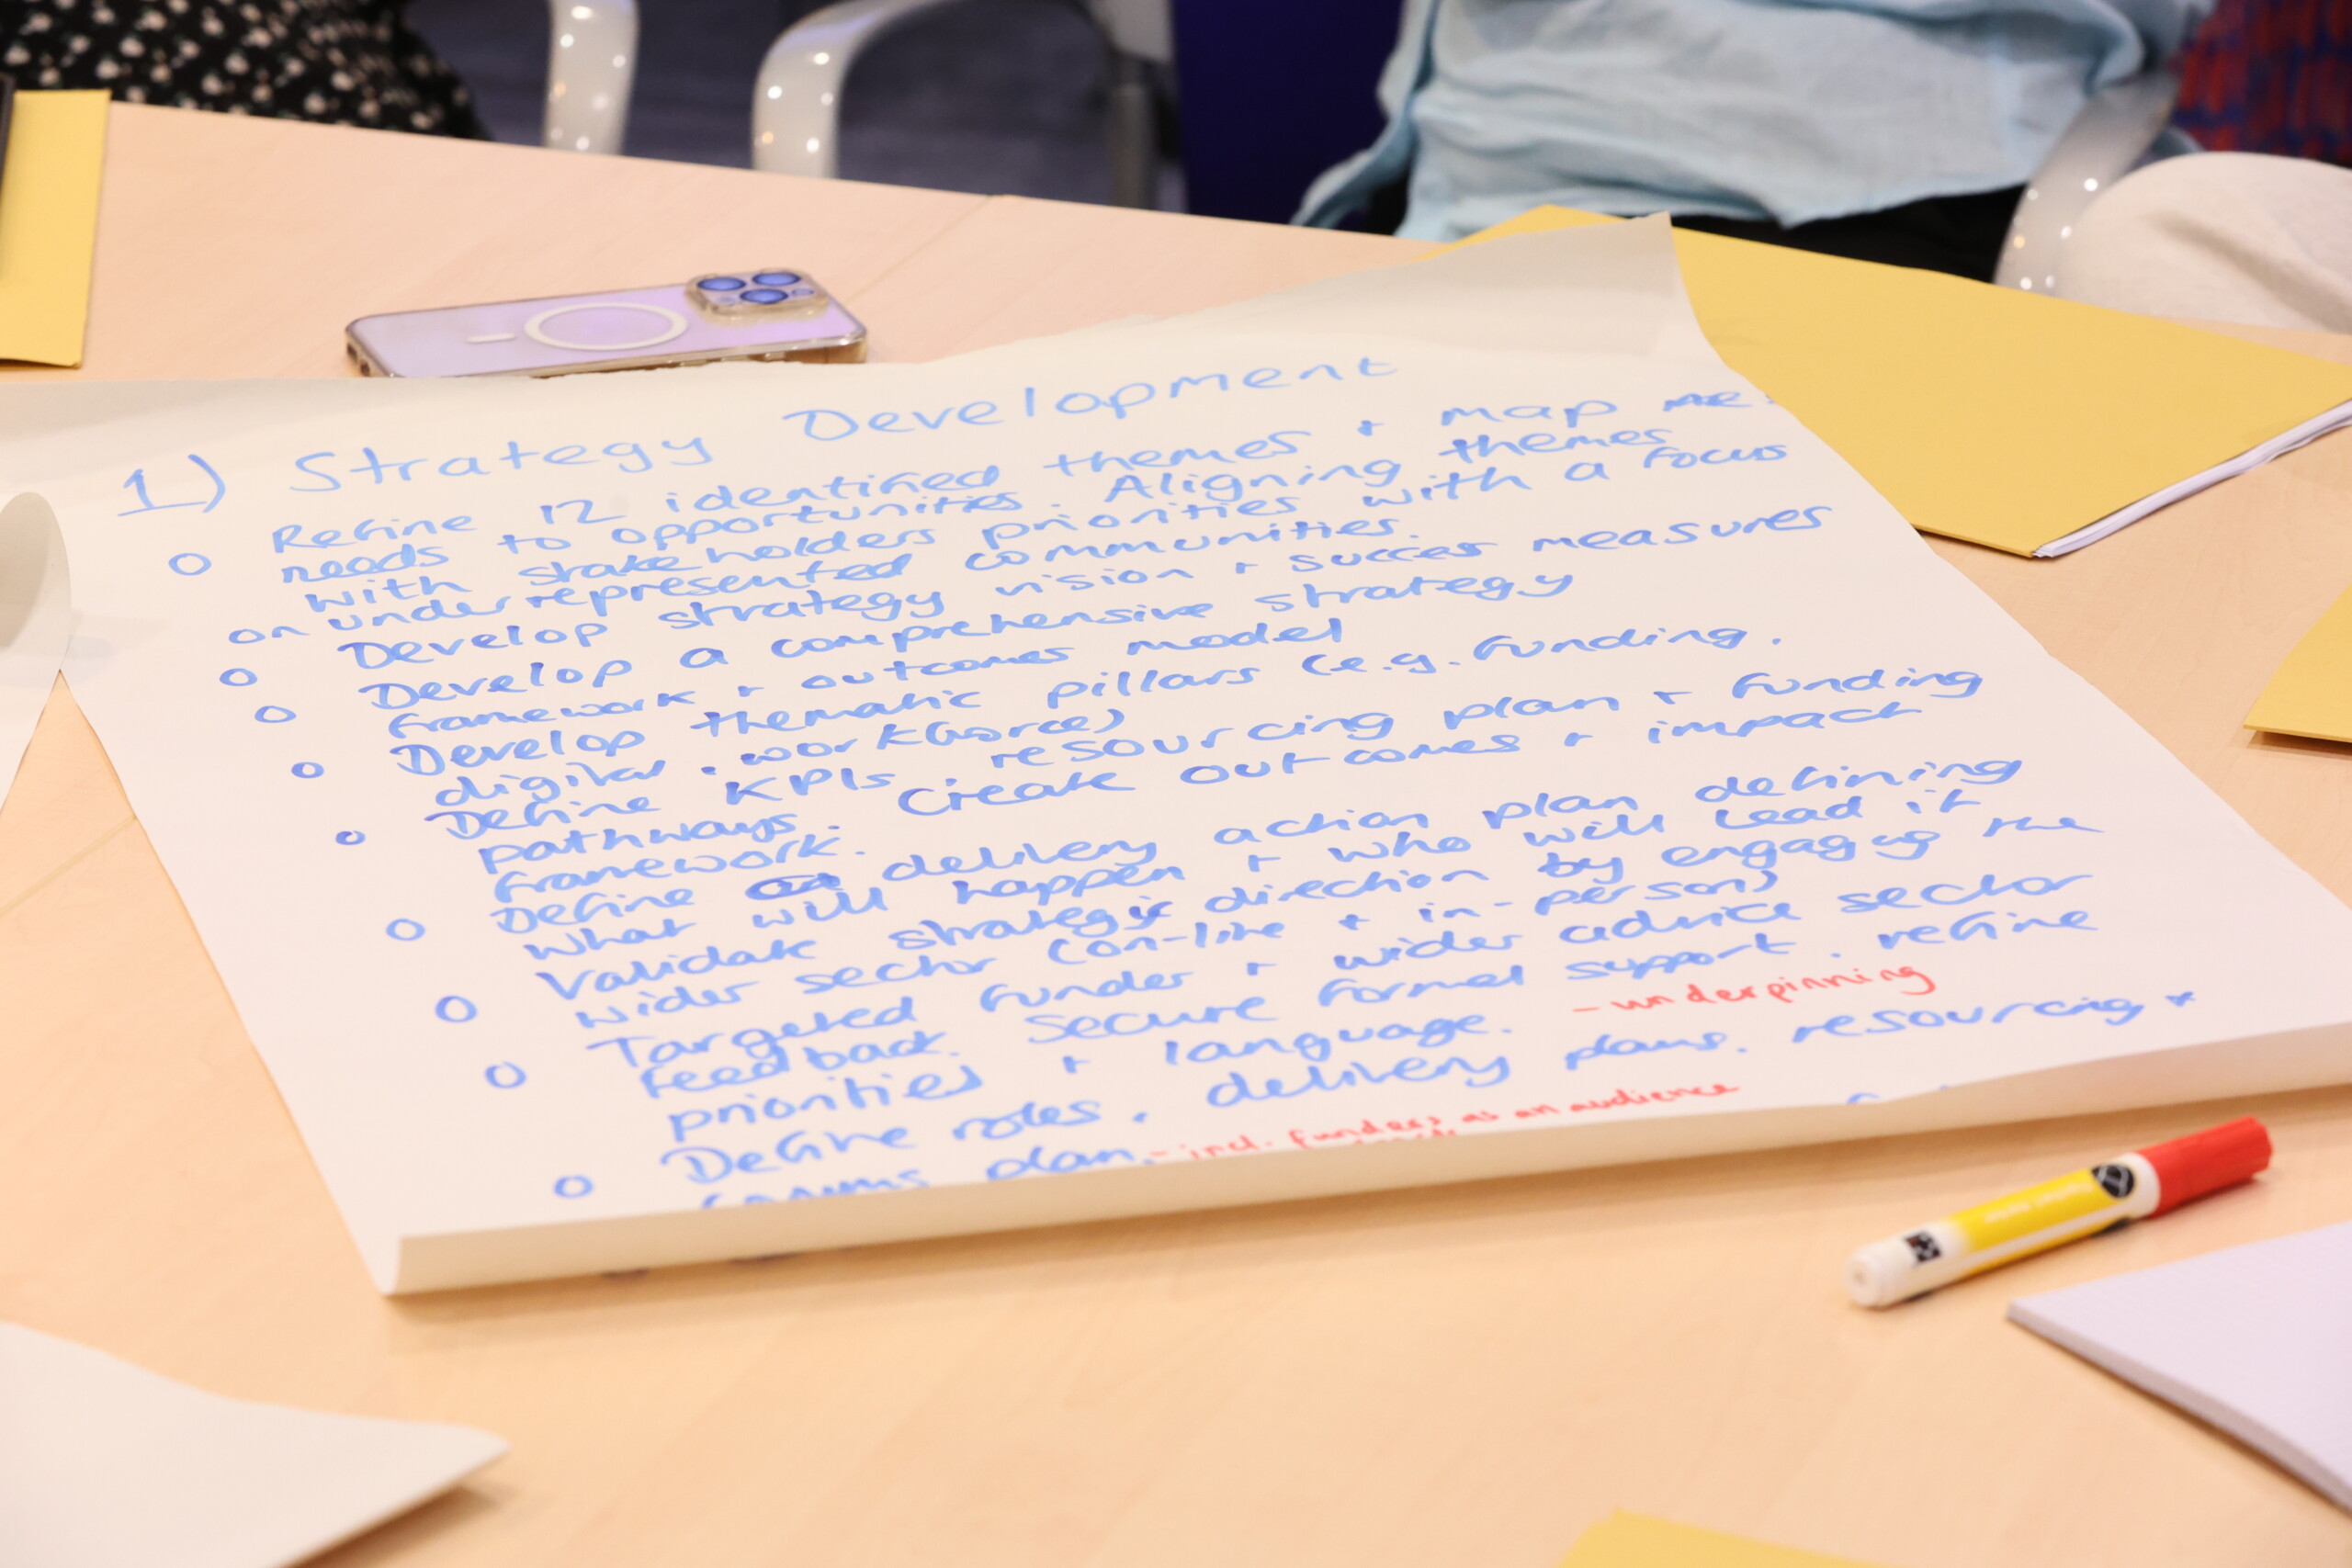 1) Strategy Development
o Refine 12 identified themes + map
needs to opportunities. Aligning themes
with stakeholders priorities with a focus
on underrepresented communities.
o Develop strategy vision + succes measures
o Develop a comprehensive strategy
framework + outcomes model
o Develop thematic pillars (e.g. funding.
digital. workforce)
o Define KPIs resourcing plan + funding
pathways. Create outcomes + impact
framework.
o Define delivery action plan defining
what will happen + who will lead it
o Validate strategic direction by engaging the
wider sector (on-line + in-person)
o Targeted funder + wider advice sector
feedback. Secure formal support. refine
priorities + language. - underpinning
o Define roles, delivery plans. resourcing +
comms plan. - incl. funders as an audience